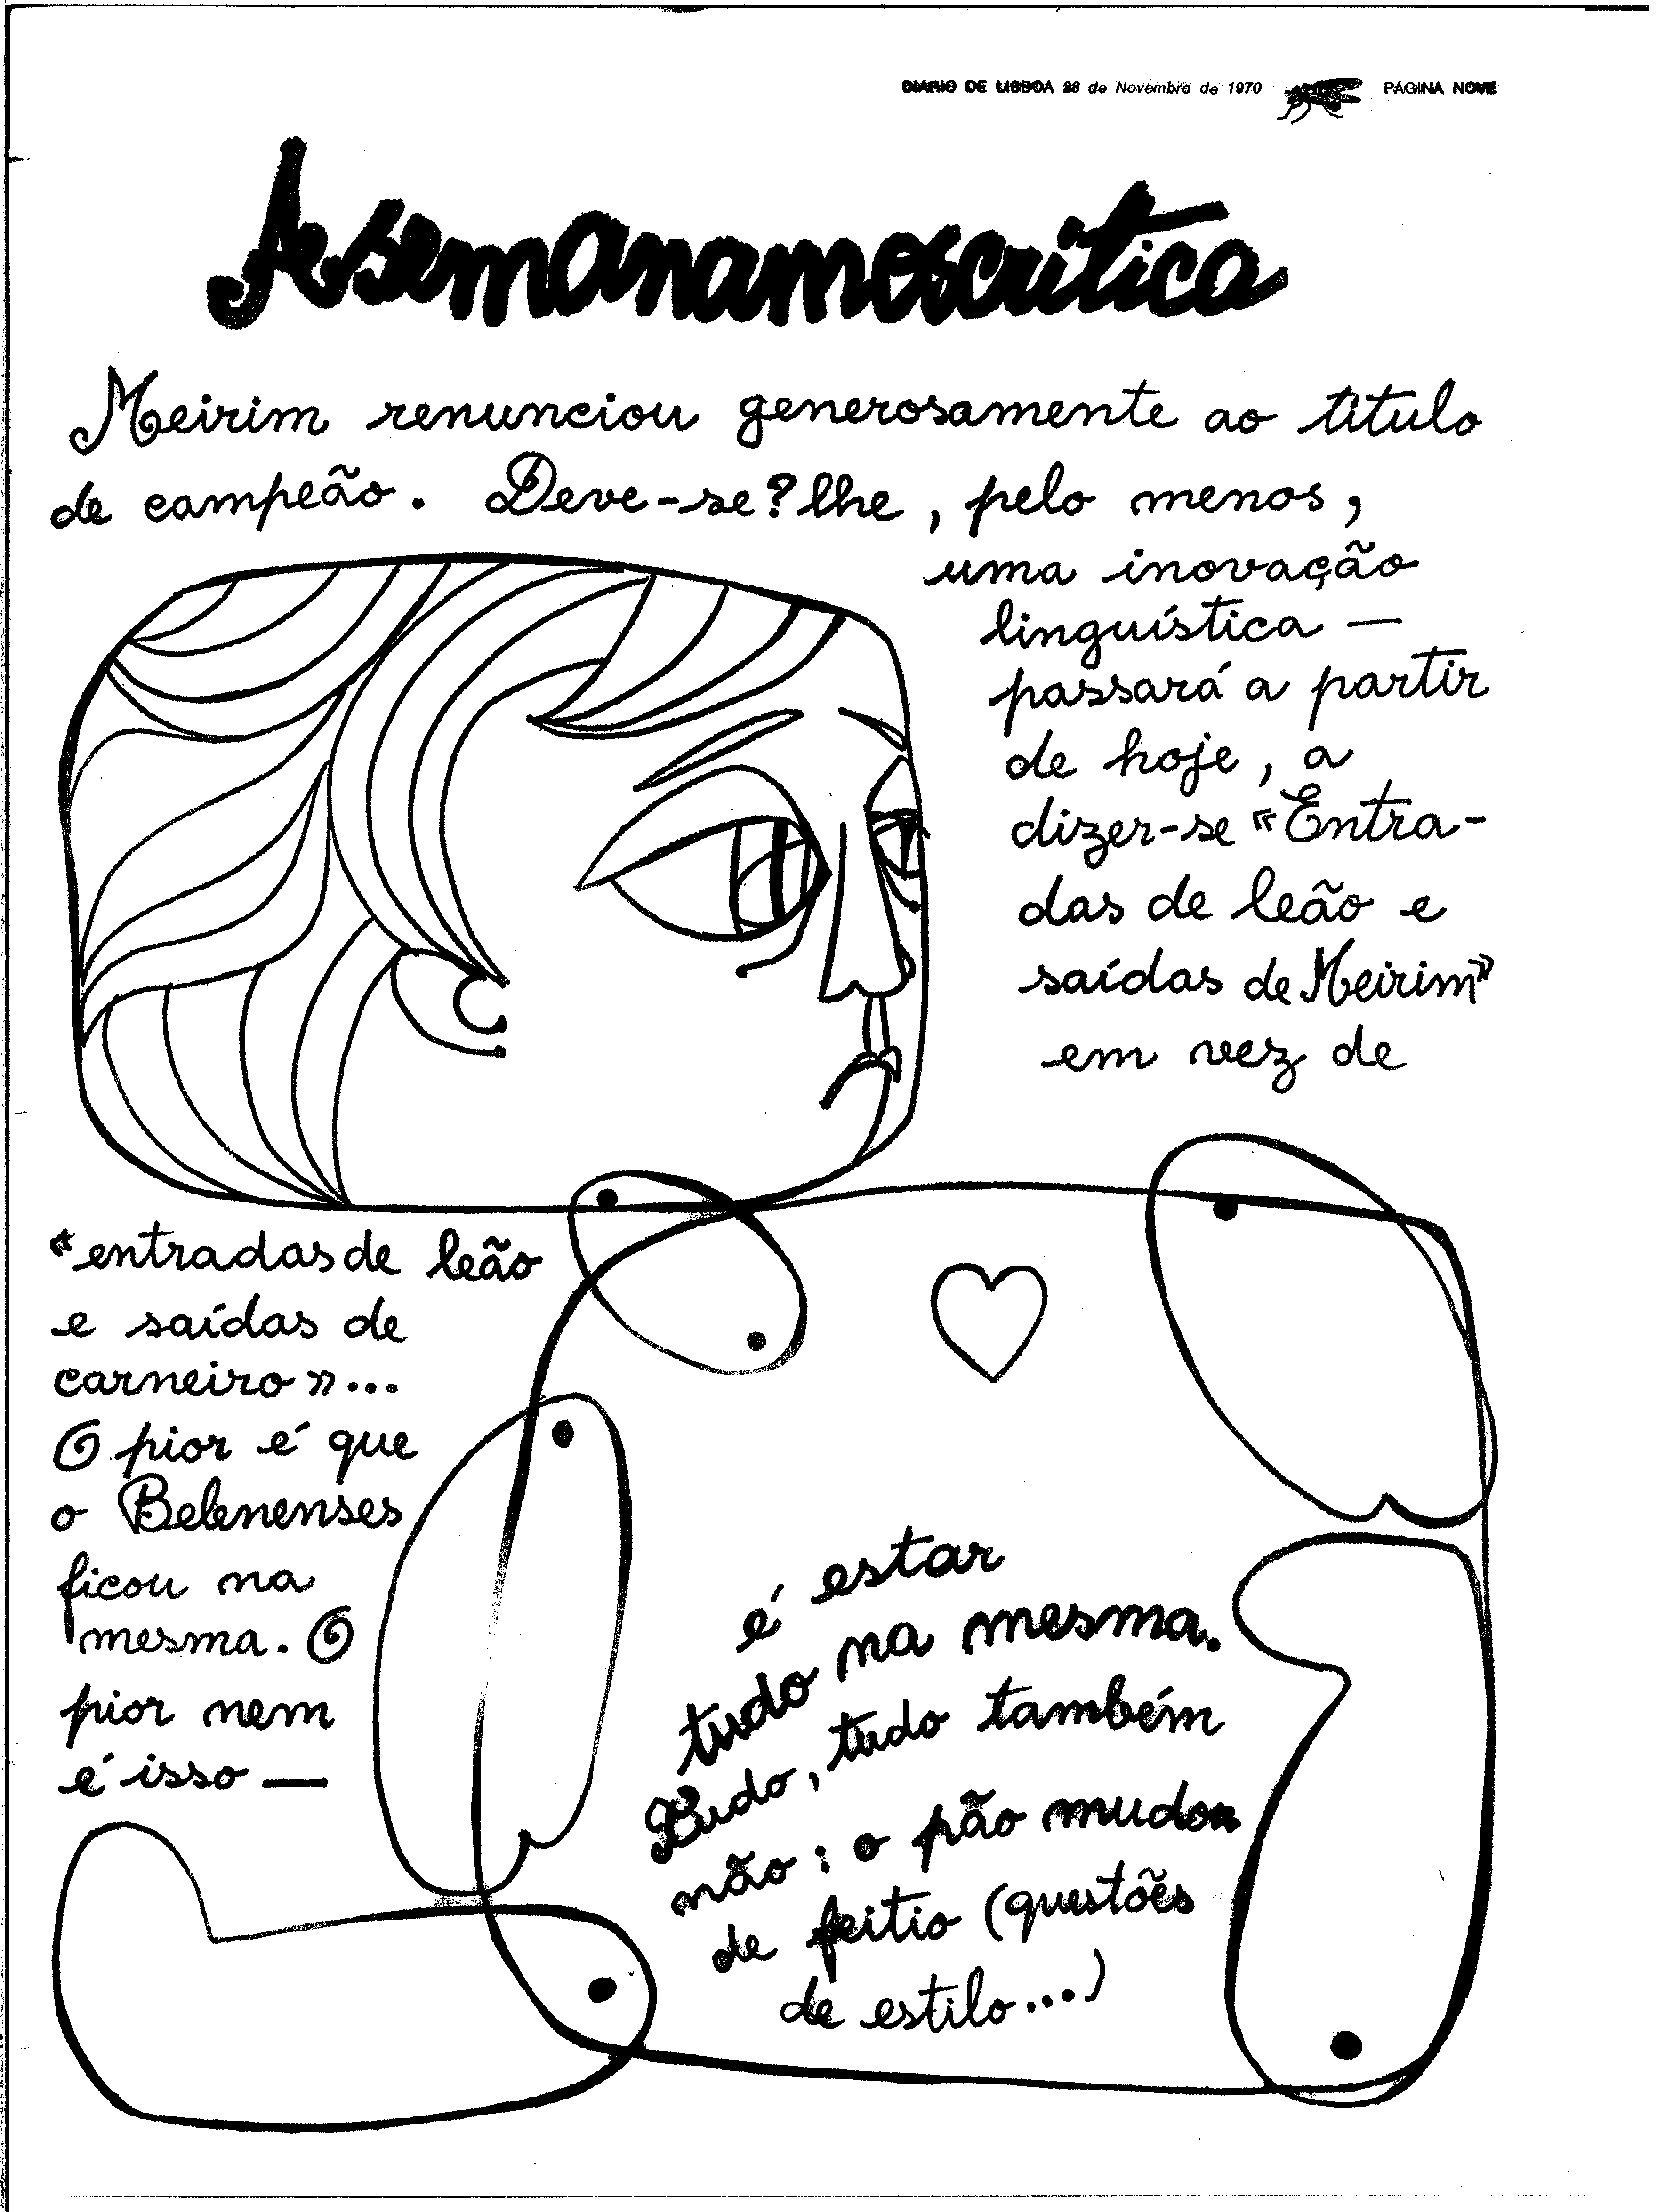 DIÁRIO DE LISBOA 28 de Novembro de 1970 PÁGINA NOVE
A semanamoscritica
Meirim renunciou generosamente ao titulo
de campeão. Deve-se? lhe, pelo menos,
uma inovação
linguística —
passará a partir
de hoje, a
dizer-se «Entra-
das de leão e
saídas de Meirim»
em vez de
«entradas de leão
e saídas de
carneiro»...
O pior é que
o Belenenses
ficou na
mesma. O
pior nem
é isso —
é estar
tudo na mesma.
Tudo, tudo também
não: o pão mudou
de feitio (questões
de estilo...)